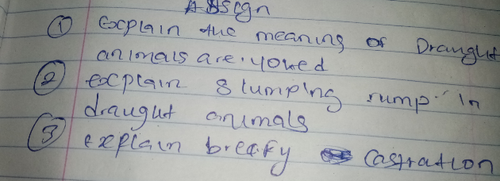 Assgn
① explain the meaning of Draught
animals are yoked
② explain slumping rump in
draught animals
③ explain breafy castration